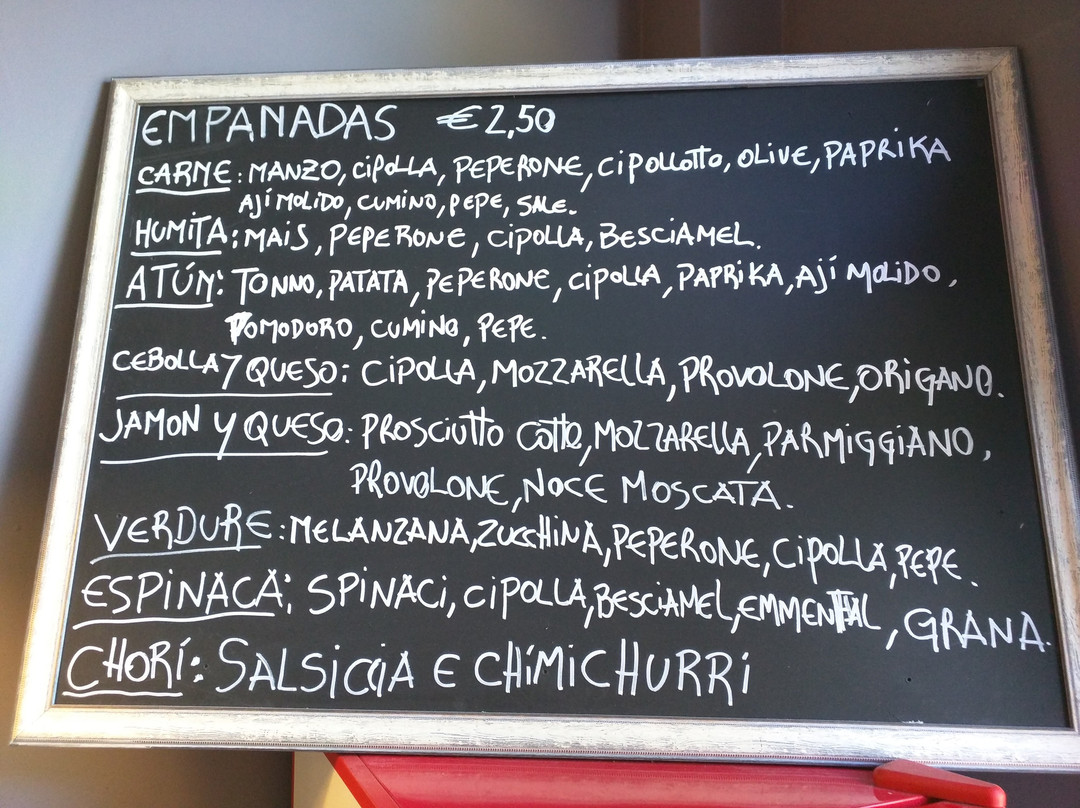 EMPANADAS €2,50
CARNE: MANZO, CIPOLLA, PEPERONE, CIPOLLOTTO, OLIVE, PAPRIKA
AJÍ MOLIDO, CUMINO, PEPE, SALE.
HUMITA: MAIS, PEPERONE, CIPOLLA, BESCIAMEL.
ATÚN: TONNO, PATATA, PEPERONE, CIPOLLA, PAPRIKA, AJÍ MOLIDO,
POMODORO, CUMINO, PEPE.
CEBOLLA Y QUESO: CIPOLLA, MOZZARELLA, PROVOLONE, ORIGANO.
JAMON Y QUESO: PROSCIUTTO COTTO, MOZZARELLA, PARMIGGIANO,
PROVOLONE, NOCE MOSCATA.
VERDURE: MELANZANA, ZUCCHINA, PEPERONE, CIPOLLA, PEPE.
ESPINACA: SPINACI, CIPOLLA, BESCIAMEL, EMMENTHAL, GRANA.
CHORÍ: SALSICCIA E CHIMICHURRI